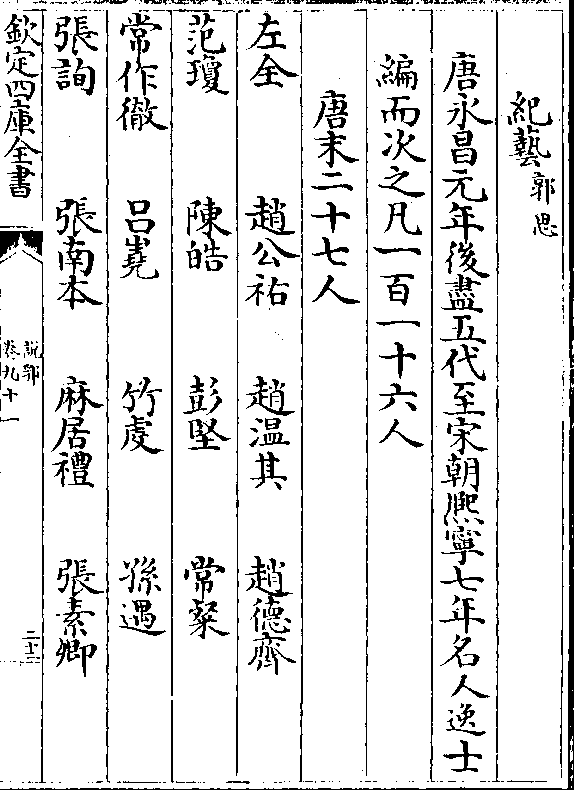 紀藝 郭思
唐永昌元年後盡五代至宋朝熈寧七年名人逸士
編而次之凡一百一十六人
唐末二十七人
左全 趙公祐 趙溫其 趙德齊
范瓊 陳皓 彭堅 常粲
常作徹 吕嶤 竹虔 孫遇
張詢 張南本 麻居禮 張素卿
欽定四庫全書
說郛
卷九十一
二十三